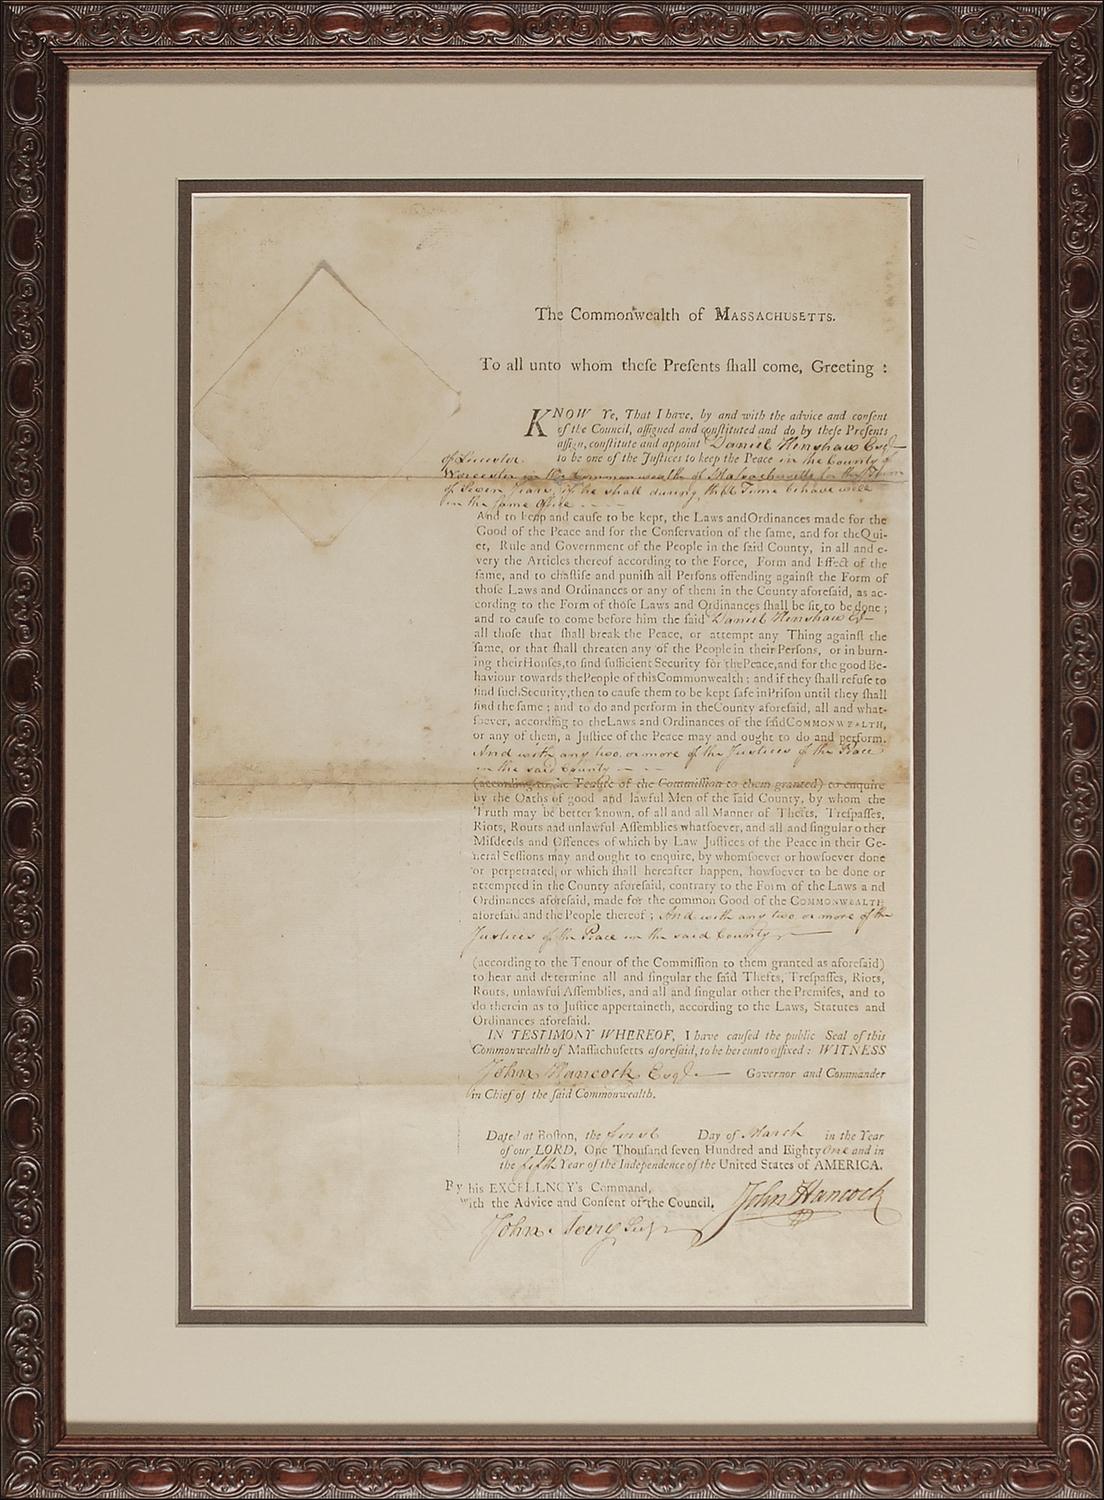 The Commonwealth of MASSACHUSETTS.
To all unto whom theſe Preſents ſhall come, Greeting :
KNOW Ye, That I have, by and with the advice and conſent
of the Council, aſſigned and conſtituted and do by theſe Preſents
aſſign, conſtitute and appoint Daniel Henshaw Esqr
of Leicester to be one of the Juſtices to keep the Peace in the County of
Worcester in the Commonwealth of Massachusetts for the Term
of Seven Years, if he shall during that Time behave well
in the same Office
And to keep and cauſe to be kept, the Laws and Ordinances made for the
Good of the Peace and for the Conſervation of the ſame, and for the Qui-
et, Rule and Government of the People in the ſaid County, in all and e-
very the Articles thereof according to the Force, Form and Effect of the
ſame, and to chaſtiſe and puniſh all Perſons offending againſt the Form of
thoſe Laws and Ordinances or any of them in the County aforeſaid, as ac-
cording to the Form of thoſe Laws and Ordinances ſhall be fit to be done ;
and to cauſe to come before him the ſaid Daniel Henshaw Esqr
all thoſe that ſhall break the Peace, or attempt any Thing againſt the
ſame, or that ſhall threaten any of the People in their Perſons, or in burn-
ing their Houſes, to find ſufficient Security for the Peace, and for the good Be-
haviour towards the People of this Commonwealth ; and if they ſhall refuſe to
find ſuch Security, then to cauſe them to be kept ſafe in Priſon until they ſhall
find the ſame ; and to do and perform in the County aforeſaid, all and what-
ſoever, according to the Laws and Ordinances of the ſaid COMMONWEALTH,
or any of them, a Juſtice of the Peace may and ought to do and perform.
And with any two or more of the Justices of the Peace
in the said County
(according to the Tenure of the Commiſſion to them granted) to enquire
by the Oaths of good and lawful Men of the ſaid County, by whom the
Truth may be better known, of all and all Manner of Thefts, Treſpaſſes,
Riots, Routs and unlawful Aſſemblies whatſoever, and all and ſingular other
Miſdeeds and Offences of which by Law Juſtices of the Peace in their Ge-
neral Seſſions may and ought to enquire, by whomſoever or howſoever done
or perpetrated, or which ſhall hereafter happen, howſoever to be done or
attempted in the County aforeſaid, contrary to the Form of the Laws and
Ordinances aforeſaid, made for the common Good of the COMMONWEALTH
aforeſaid and the People thereof ; And with any two or more of the
Justices of the Peace in the said County
(according to the Tenour of the Commiſſion to them granted as aforeſaid)
to hear and determine all and ſingular the ſaid Thefts, Treſpaſſes, Riots,
Routs, unlawful Aſſemblies, and all and ſingular other the Premiſes, and to
do therein as to Juſtice appertaineth, according to the Laws, Statutes and
Ordinances aforeſaid.
IN TESTIMONY WHEREOF, I have cauſed the public Seal of this
Commonwealth of Maſſachuſetts aforeſaid, to be hereunto affixed : WITNESS
John Hancock Esqr. Governor and Commander
in Chief of the ſaid Commonwealth.
Dated at Boſton, the first Day of March in the Year
of our LORD, One Thouſand ſeven Hundred and Eighty One and in
the fifth Year of the Independence of the United States of AMERICA.
By his EXCELLNCY's Command,
with the Advice and Conſent of the Council.
John Hancock
John Avery Secy